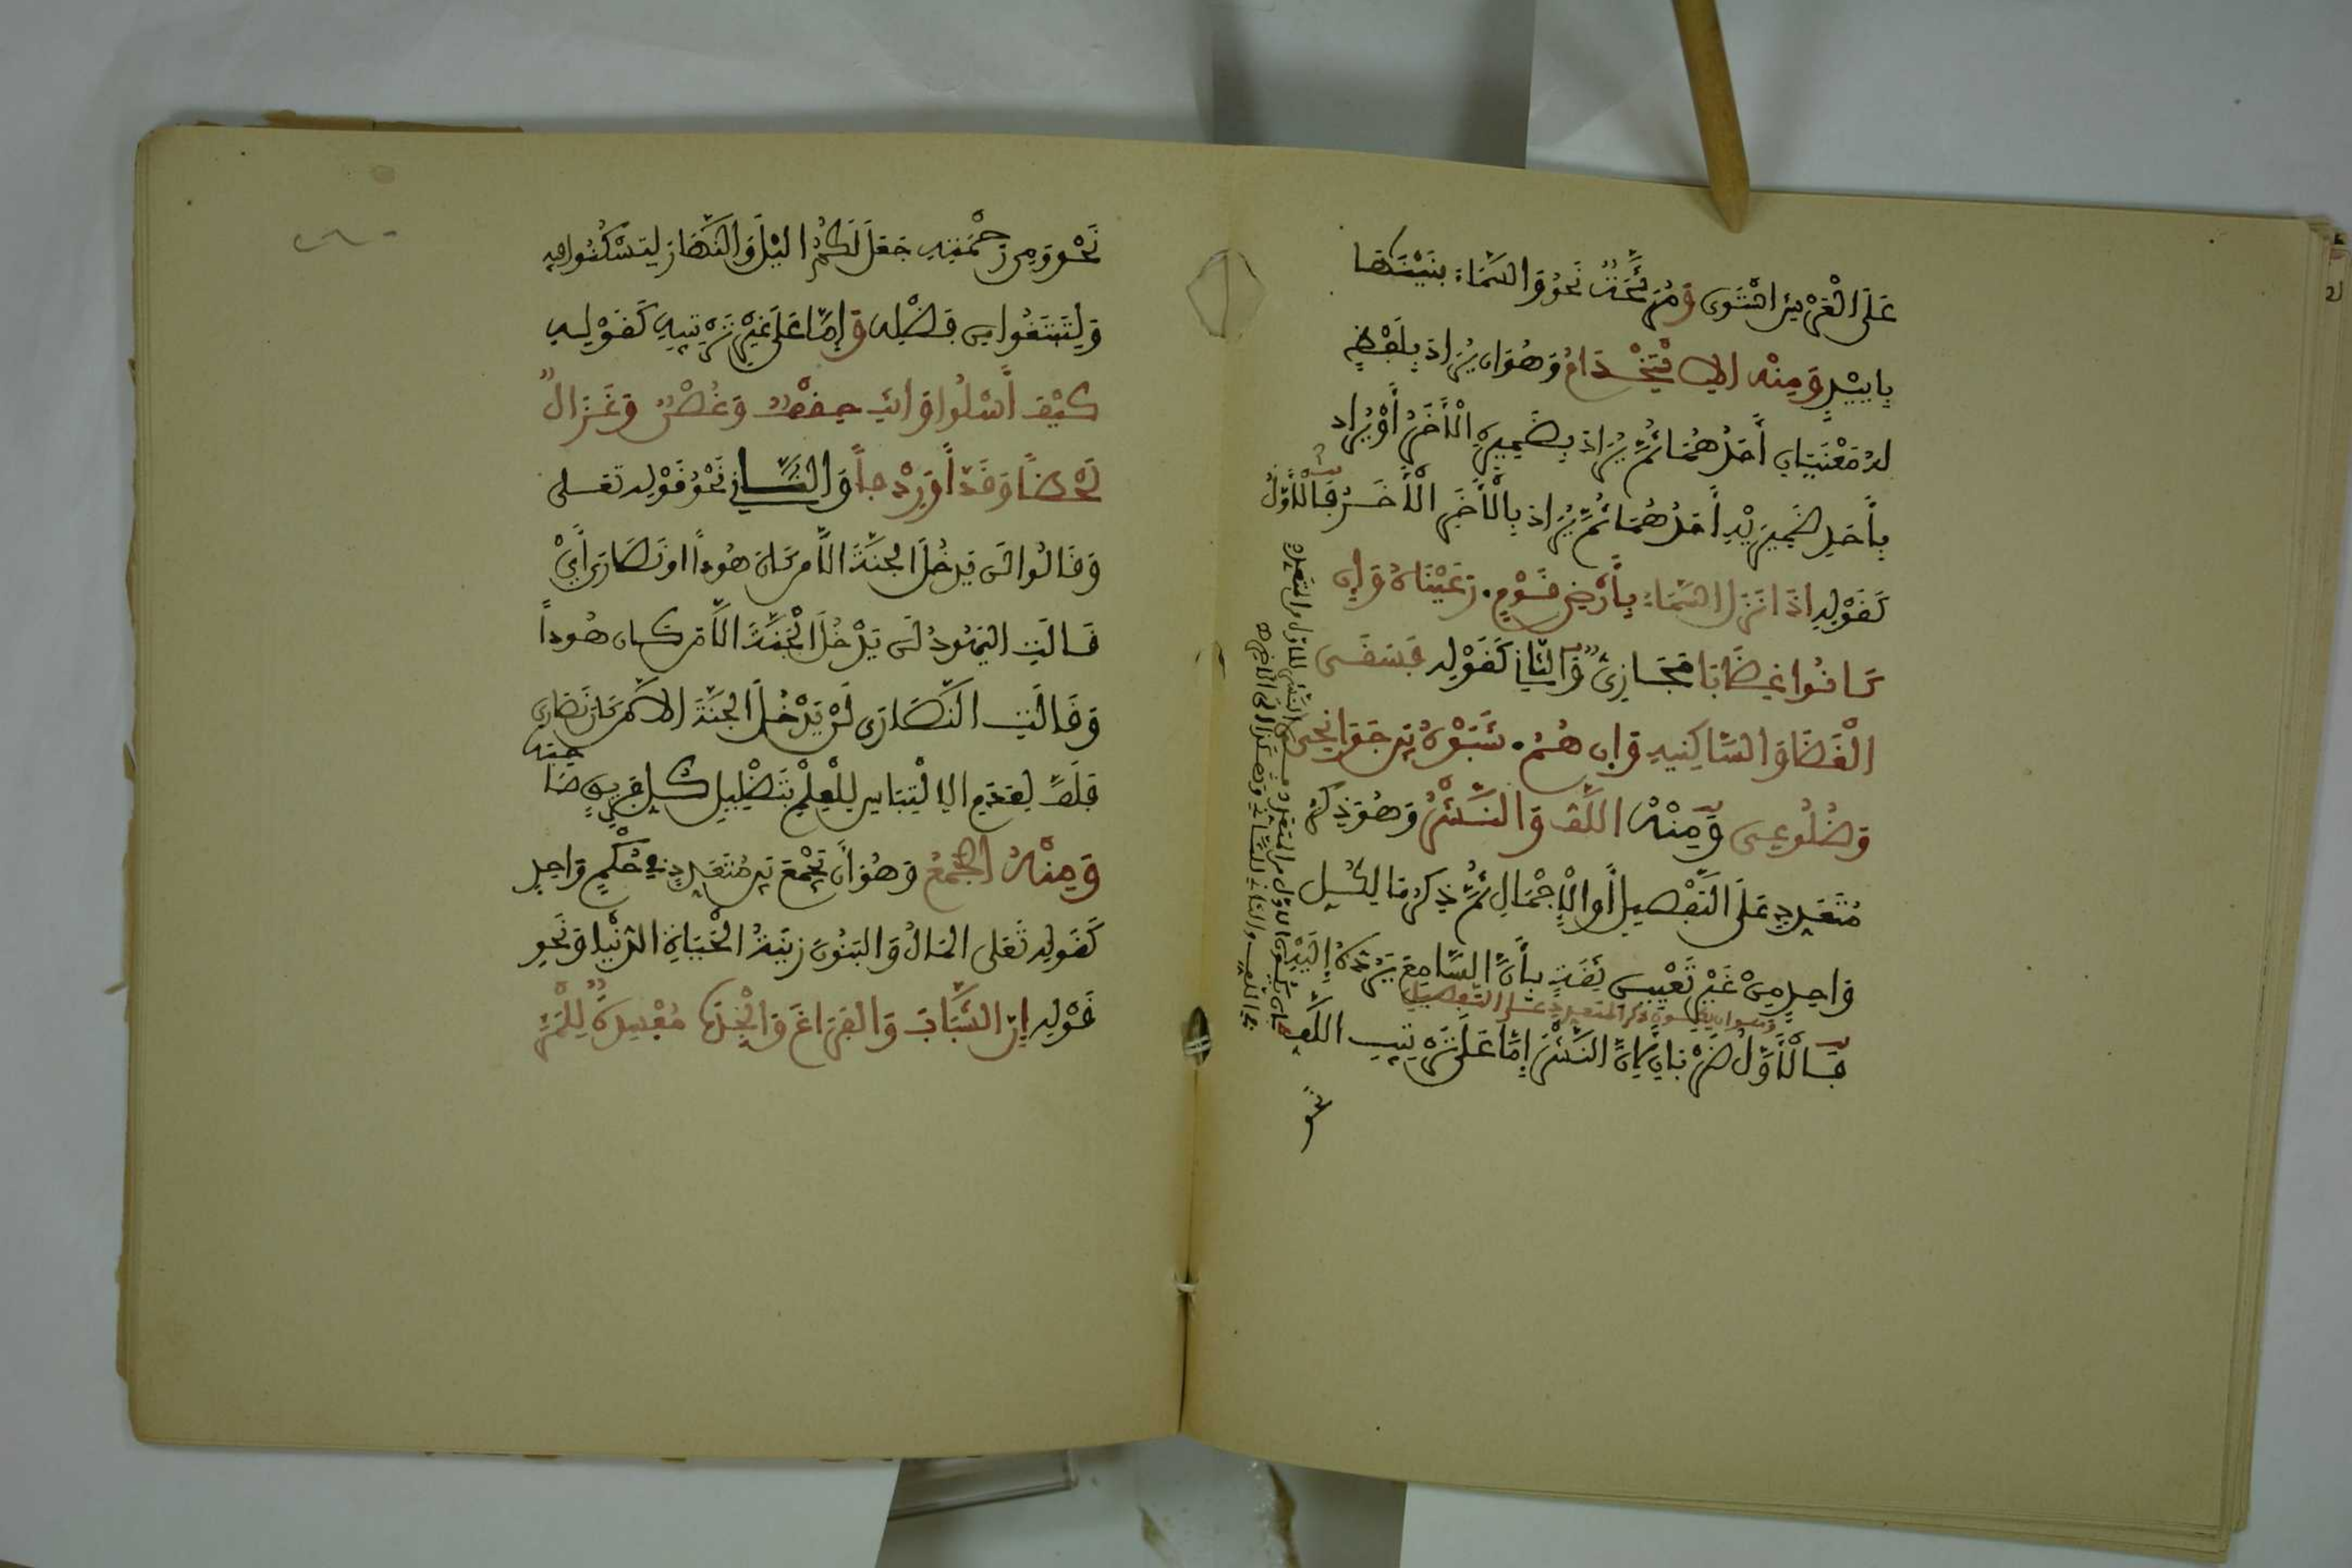 عَلَى الْعَرْشِ اسْتَوَى وَمُرَشَّحَةٌ نَحْوُ وَالسَّمَاءَ بَنَيْنَاهَا
بِأَيْيْدٍ وَمِنْهُ الِاسْتِخْدَامُ وَهُوَ ان يُرَادَ بِلَفْظٍ
لَهُ مَعْنَيَانِ أَحَدُهُمَا ثُمَّ يُرَادَ بِضَمِيرِهِ الْأَخَرُ أَوْ يُرَاد
بِأَحَدِ ضَمِيرَيْهِ أَحَدُهُمَا ثُمَّ يُرَادَ بِالْأَخَرِ الْأَخَرُ فَالْأَوَّلُ
كَقَوْلِهِ اذَا نَزَلَ السَّمَاءُ بِأَرْضِ قَوْمٍ. رَعَيْنَاهُ وَإِن
كَانُوا غِضَابَا مَجَازِيٌّ وَالثَّانِي كَقَوْلِهِ فَسَقَى
الْغَضَا وَالسَّاكِنِيهِ وَإِن هُمُ. شَبُّوهُ بَيْنَ جَوَانِحِي
وَضُلُوعِي وَمِنْهُ اللَّفُّ وَالنَّشْرُ وَهُوَ ذِكْرُ
مُتَعَدِّدٍ عَلَى التَّفْصِيلِ أَوِ الْإِجْمَالِ ثُمَّ ذِكْرُ مَا لِكُلِّ
وَاحِدٍ مِنْ غَيْرِ تَعْيِينٍ ثِقَةً بِأَنَّ السَّامِعَ يَرُدُّهُ إِلَيْهِ
وهو ان يكون ذكر المتعدد على التفصيل
فَالْأَوَّلُ ضَرْبَانِ لِأَنَّ النَّشْرَ إِمَّا عَلَى تَرْتِيبِ اللَّفِّ
نحو
نَحْوُ وَمِن رَحْمَتِهِ جَعَلَ لَكُمُ اليْلَ وَالنَّهَارَ لِتَسْكُنُوا فِيهِ
وَلِتَبْتَغُوا مِن فَضْلِهِ وَإِمَّا عَلَى غَيْرِ تَرْتِيبِهِ كَقَوْلِهِ
كَيْفَ أَسْلُوا وَأَنْتِ حِقْفٌ وَغُصْنٌ وَغَزَالٌ
لَحْظًا وَقَدًّا وَرِدْفًا وَالثَّانِي نَحْوُ قَوْلِهِ تَعَلى
وَقَالُوا لَن يَدْخُلَ الجَنَّةَ اِلَّا مَن كَانَ هُودًا اَو نَصَارَى أَيْ
قَالَتِ اليَهُودُ لَن يَدْخُلَ الْجَنَّةَ اِلَّا مَن كَان هُودًا
وَقَالَتِ النَّصَارَى لَنْ يَدْخُلَ الجَنَّةَ اِلَّا مَن كَانَ نَصَارَى
فَلَفَّ لِعَدَمِ الِالْتِبَاسِ لِلْعِلْمِ بِتَضْلِيلِ كُلِّ فَرِيقٍ صَاحِبَهُ
وَمِنْهُ الْجَمْعُ وَهُوَ أَن يُجْمَعَ بَيْنَ مُتَعَدِّدٍ فِي حُكْمٍ وَاحِدٍ
كَقَوْلِهِ تَعَلى المَالُ وَالبَنُونَ زِينَةُ الْحَيَاةِ الدُّنْيَا وَنَحْوِ
قَوْلِهِ إِنَّ الشَّبَابَ وَالفَرَاغَ وَالْجِدَةَ مُفْسِدَةٌ لِلْمَرْءِ